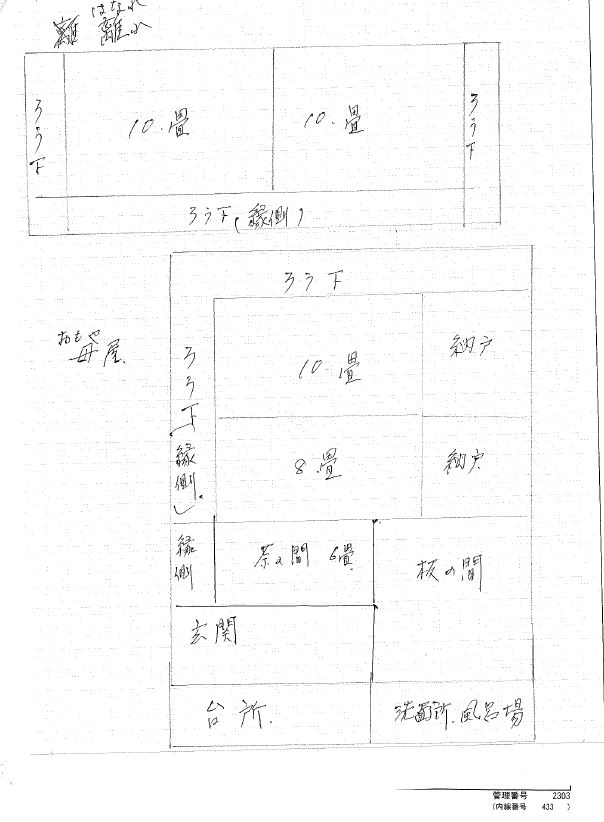 はなれ
離 離れ
ろう下
10.畳
10.畳
ろう下
ろう下(縁側)
ろう下
おもや
母屋.
ろう下(縁側)
10.畳
納戸
8.畳
納戸
縁側
茶の間 6畳
板の間
玄関
台所.
洗面所.風呂場
管理番号 2303
(内線番号 433 )